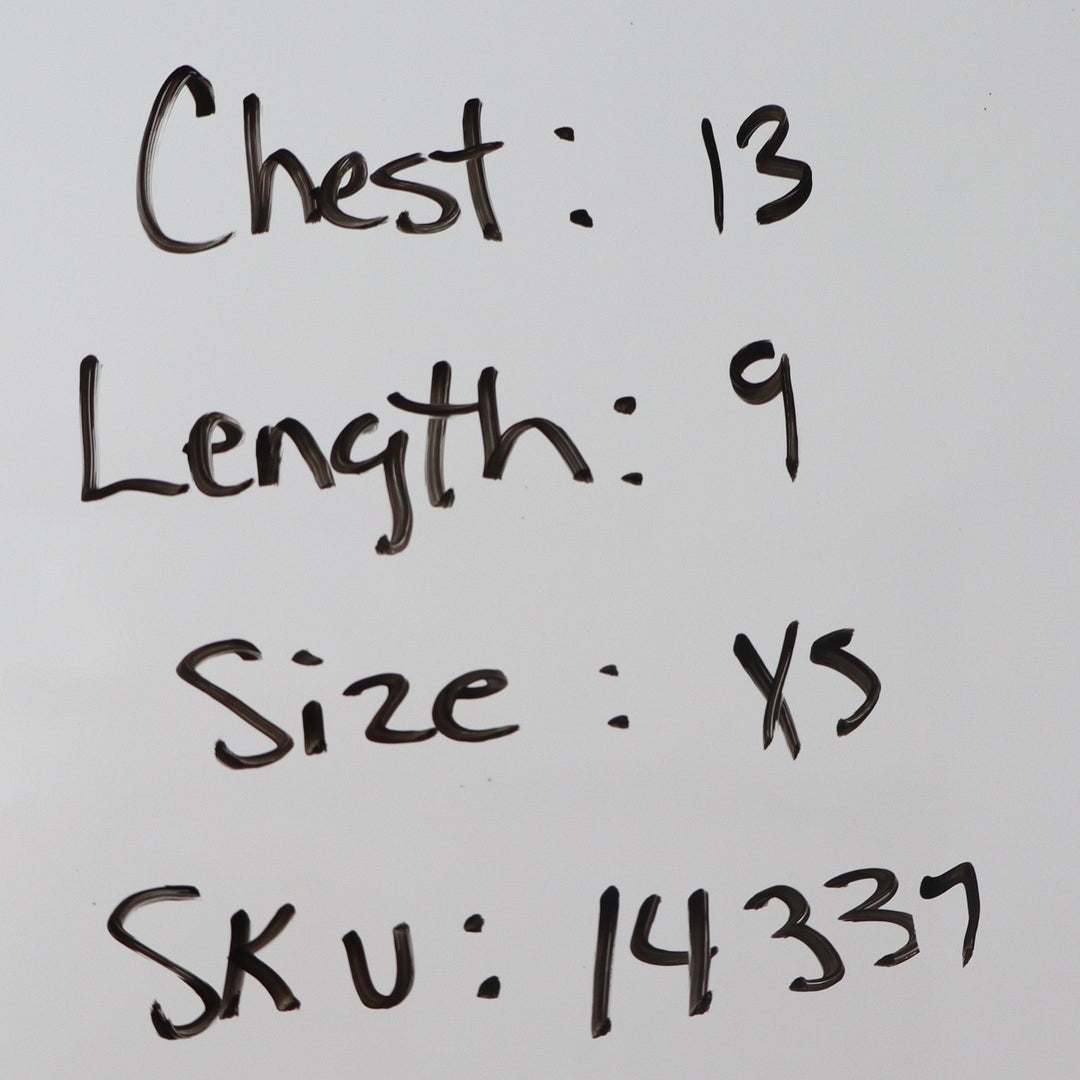 Chest: 13
Length: 9
Size: XS
SKU: 14337